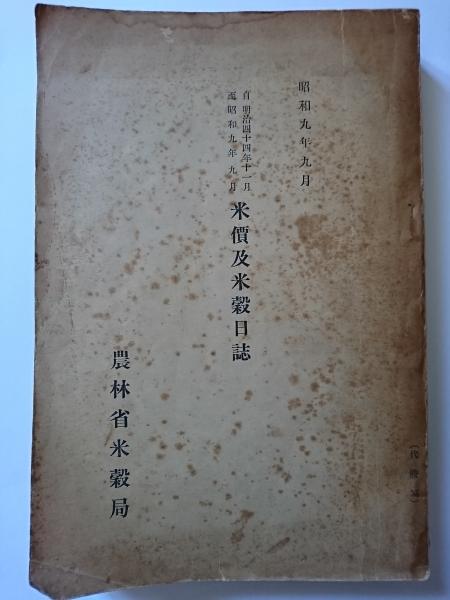 昭和九年九月
自明治四十四年十一月
至昭和九年九月
米價及米穀日誌
農林省米穀局
(代謄寫)